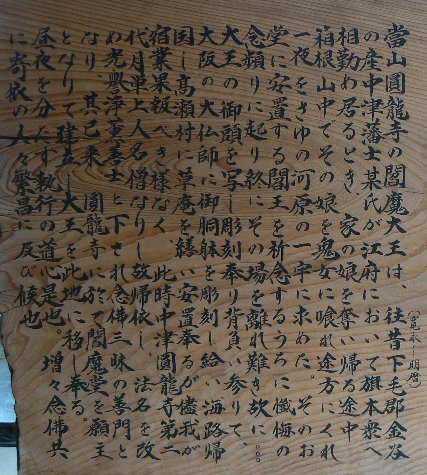 當山圓龍寺の閻魔大王は、往昔下毛郡金谷
(寛永ー明暦)
の座中津藩士某氏が江府において旗本衆へ
相勤め居るとき、家の娘を奪い帰る途中
箱根山中でその娘を鬼女に喰れ途方にくれ
一夜をさゆの河原の一宇に求めた、そのお
堂に安置する閻王を祈念するうちに懺悔の
念頻りに起り終にその場を離れ難き故に
大王の御頭を写し彫刻奉り背負い参りて、
大阪の大仏師に御胴躰を彫刻し給い海路帰
国し高瀬村に草庵を繕い安置奉るが儘我が
宿業果報べき様なく、此時中津圓龍寺第二
代月単上人名僧なりし故帰依し、法名を改
め光譽浄薫善士と下され念佛三昧の善門と
なり、其已来、圓龍寺に於て閻魔堂を願主
となりて建立し大王を此地に移し奉る、
昼夜を分たず執行の道心是也、増々念佛共
に寄依の人々繁昌に及び候也